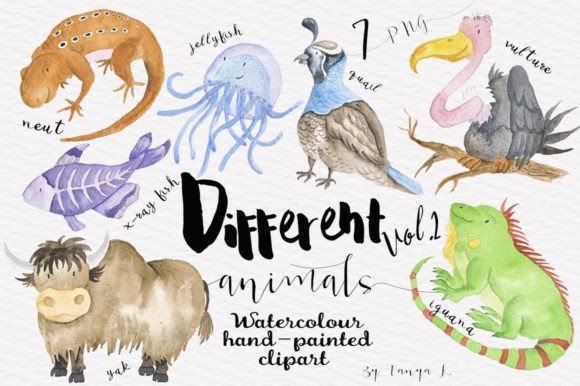 7 PNG
jellyfish
quail
vulture
neut
x-ray fish
Different
Vol.2
animals
iguana
Watercolour
hand-painted
clipart
yak
By Tanya K.